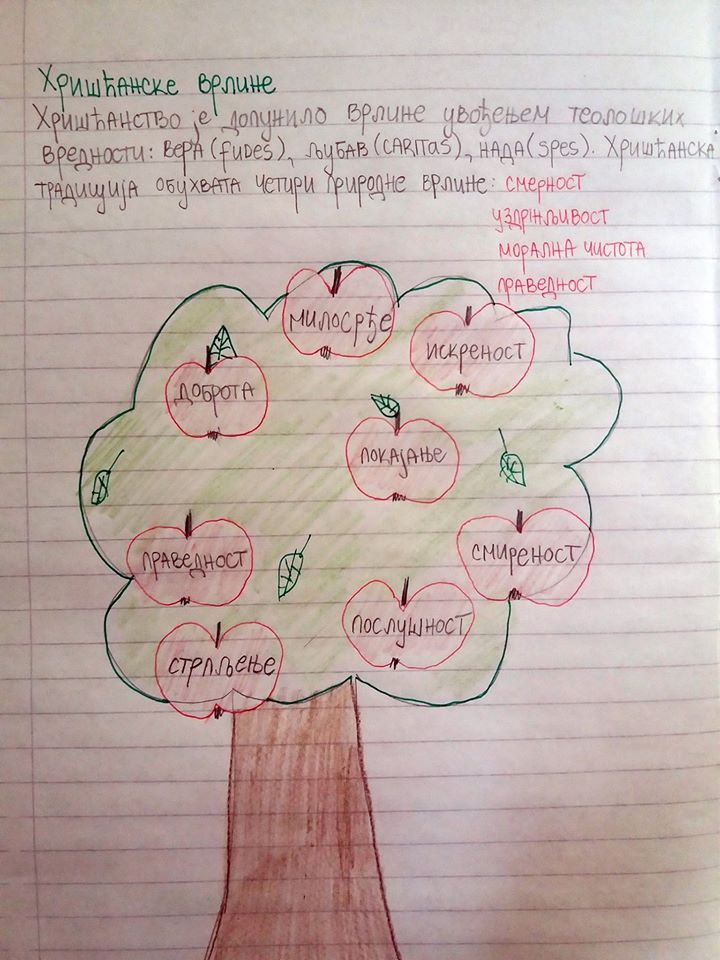 Хришћанске врлине
Хришћанство је допунило врлине увођењем теолошких
вредности: вера (fudes), љубав (caritas), нада (spes). Хришћанска
традиција обухвата четири природне врлине: смерност
уздржљивост
морална чистота
праведност
милосрђе
искреност
доброта
покајање
праведност
смиреност
послушност
стрпљење